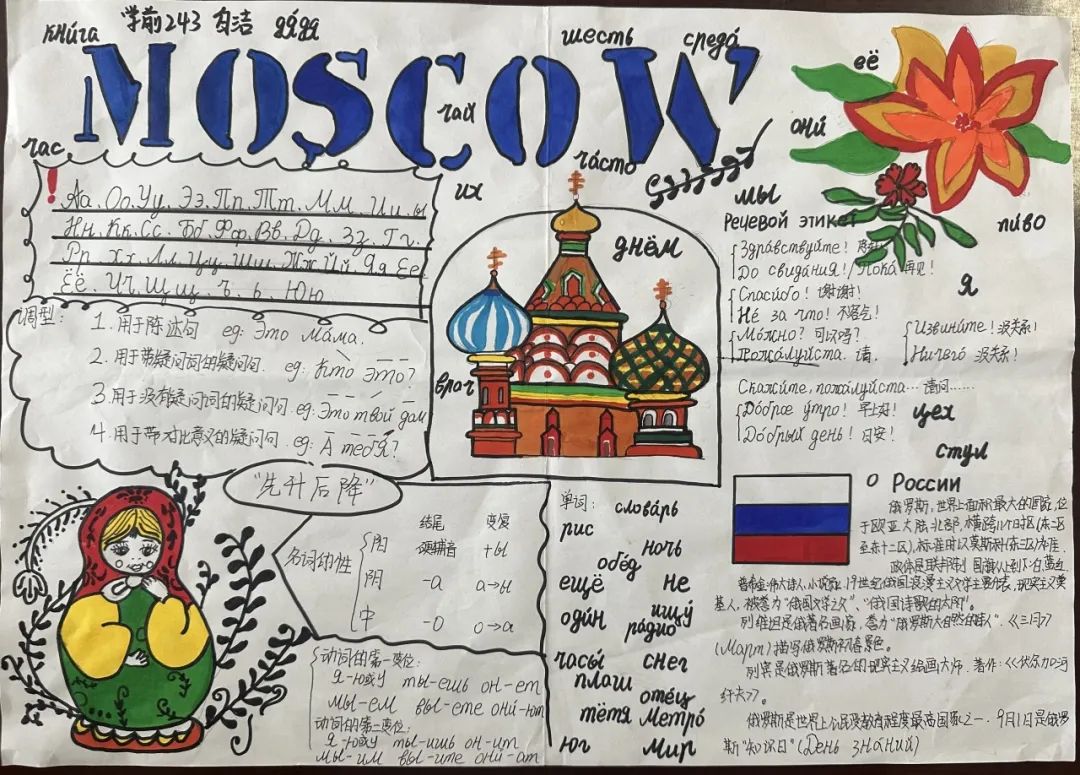 книга
学前243
дядя
MOSCOW
шесть
среда́
её
чай
час
они́
ча́сто
их
мы
пи́во
Аа. Оо. Уу. Ээ. Пп. Тт. Мм. Ии. ы
Нн. Кк. Сс. Бб. Фф. Вв. Дд. Зз. Гг.
Рр. Хх. Лл. Цц. Шш. Жж. Йй. Яя. Ее
Ёё. Чч. Щщ. ъ. ь. Юю
днём
врач
调型:
1. 用于陈述句 eg: Это Мáма.
2. 用于带疑问词的疑问句. eg: Кто это?
3. 用于没有疑问词的疑问句. eg: Это твой дом
4. 用于带对比意义的疑问句. eg: А тебя?
Речевой этикет
Здра́вствуйте!
До свида́ния! / Пока́ 再见!
Спаси́бо! 谢谢!
Не́ за что! 不客气!
Мо́жно? 可以吗?
Пожа́луйста. 请.
Извини́те! 没关系!
Ничего́ 没关系!
Скажи́те, пожа́луйста... 请问......
До́брое у́тро! 早上好!
До́брый день! 日安!
я
цех
стул
"先升后降"
结尾 变复
名词的性
阳 硬辅音 +ы
阴 -а а→ы
中 -о о→а
动词的第一变位:
я-ю或у ты-ешь он-ет
мы-ем вы-ете они́-ют
动词的第二变位:
я-ю或у ты-ишь он-ит
мы-им вы-ите они́-ат
单词:
слова́рь
рис
ночь
обе́д
ещё
не
оди́н
ищу́
ра́дио
часы́
снег
плащ
оте́ц
тётя
Метро́
юг
Мир
о России
俄罗斯,世界上面积最大的国家,位
于欧亚大陆北部,横跨11个时区(东二区
至东十二区),标准时以莫斯科(东三区)为准.
政体是联邦制 国旗从上到下:白.蓝.红.
普希金:伟大诗人,小说家,19世纪俄国浪漫主义文学主要代表,现实主义奠
基人,被誉为"俄国文学之父"、"俄国诗歌的太阳".
列维坦是俄著名画家,誉为"俄罗斯大自然的诗人".《三月》
(Март)描写俄罗斯初春景色。
列宾是俄罗斯著名的现实主义绘画大师.著作:《伏尔加河
纤夫》.
俄罗斯是世界上公民受教育程度最高国家之一.9月1日是俄罗
斯"知识日"(День зна́ний)